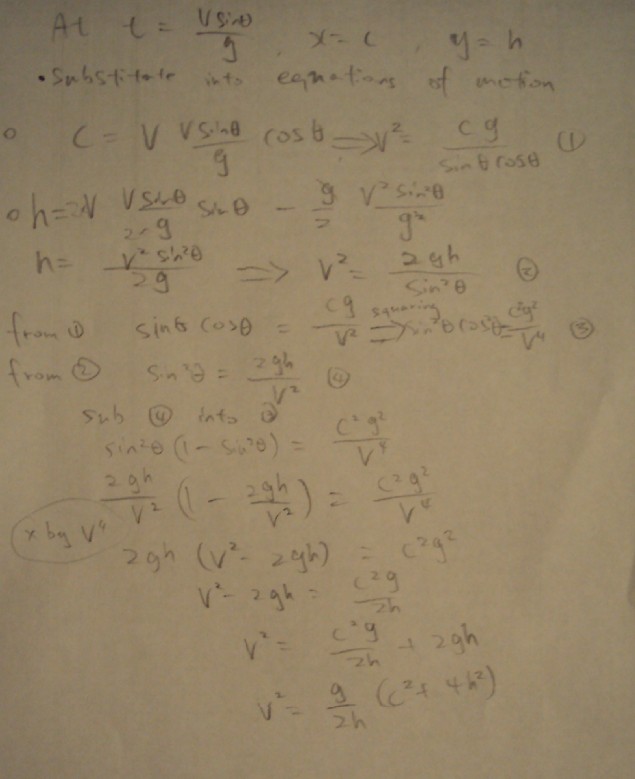 At t = Vsinθ/g, x = c, y = h
• Substitute into equations of motion
o C = V Vsinθ/g cosθ ⟹ V² = cg/(sinθcosθ) ①
o h = V Vsinθ/g sinθ − g/2 V²sin²θ/g²
h = V²sin²θ/2g ⟹ V² = 2gh/sin²θ ②
from ① sinθ cosθ = cg/V² squaring ⟹ sin²θcos²θ = c²g²/V⁴ ③
from ② sin²θ = 2gh/V² ④
sub ④ into ③
sin²θ(1 − sin²θ) = c²g²/V⁴
2gh/V² (1 − 2gh/V²) = c²g²/V⁴
x by V⁴
2gh (V² − 2gh) = c²g²
V² − 2gh = c²g/2h
V² = c²g/2h + 2gh
V² = g/2h (c² + 4h²)